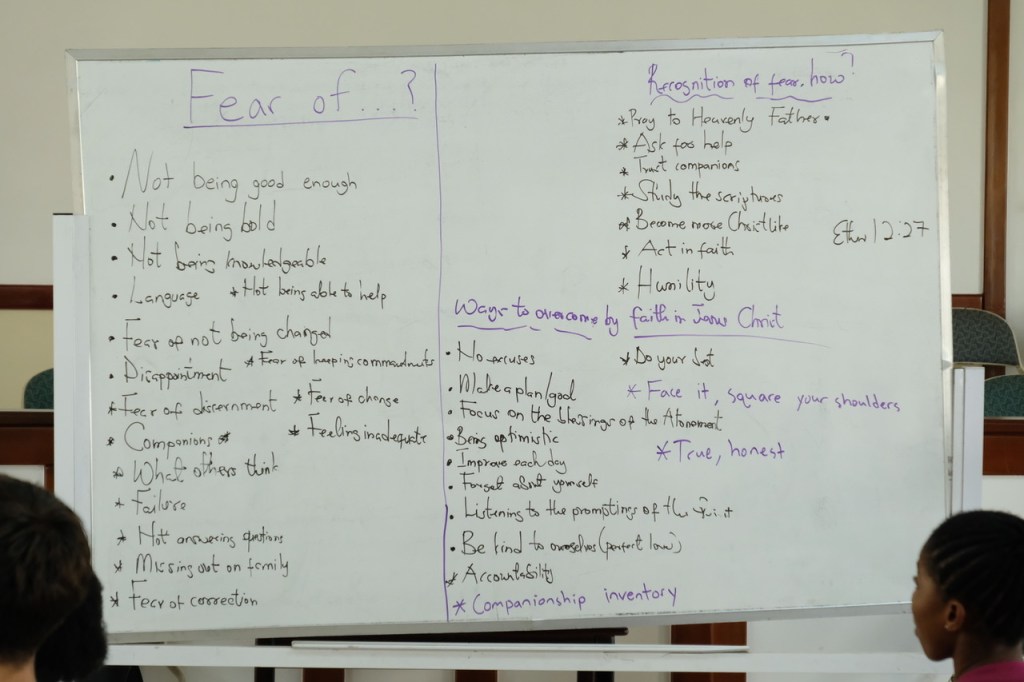 Fear of...?
• Not being good enough
• Not being bold
• Not being knowledgeable
• Language * Not being able to help
• Fear of not being changed
* Fear of keeping commandments
• Disappointment
* Fear of discernment * Fear of change
* Companions * * Feeling inadequate
* What others think
* Failure
* Not answering questions
* Missing out on family
* Fear of correction
Recognition of fear. how?
* Pray to Heavenly Father.
* Ask for help
* Trust companions
* Study the scriptures
* Become more Christlike
Ether 12:27
* Act in faith
* Humility
Ways to overcome by faith in Jesus Christ
• No excuses * Do your
• Make a plan/goal
* Face it, square your shoulders
• Focus on the blessings of the Atonement
• Being optimistic
* True, honest
• Improve each day
• Forget about yourself
• Listening to the promptings of the Spirit
• Be kind to ourselves (perfect love)
* Accountability
* Companionship inventory